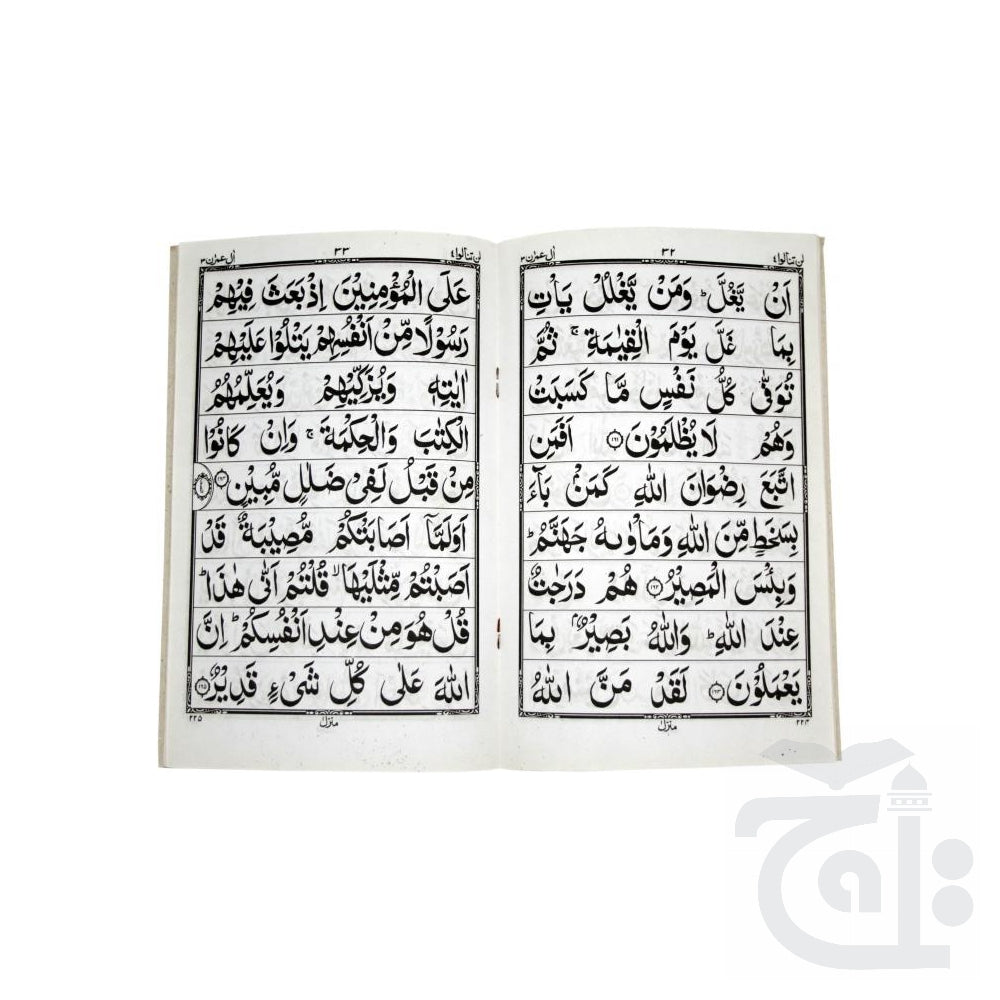 لن تنالوا ٤ ٣٢ اٰل عمرٰن ٣
اَنْ يَّغُلَّ ؕ وَمَنْ يَّغْلُلْ يَاْتِ
بِمَا غَلَّ يَوْمَ الْقِيٰمَةِ ۚ ثُمَّ
تُوَفّٰى كُلُّ نَفْسٍ مَّا كَسَبَتْ
وَهُمْ لَا يُظْلَمُوْنَ ۝١٦١ اَفَمَنِ
اتَّبَعَ رِضْوَانَ اللّٰهِ كَمَنْۢ بَآءَ
بِسَخَطٍ مِّنَ اللّٰهِ وَمَاْوٰىهُ جَهَنَّمُ ؕ
وَبِئْسَ الْمَصِيْرُ ۝١٦٢ هُمْ دَرَجٰتٌ
عِنْدَ اللّٰهِ ؕ وَاللّٰهُ بَصِيْرٌۢ بِمَا
يَعْمَلُوْنَ ۝١٦٣ لَقَدْ مَنَّ اللّٰهُ
منزل ٢٢٤
لن تنالوا ٤ ٣٣ اٰل عمرٰن ٣
عَلَى الْمُؤْمِنِيْنَ اِذْ بَعَثَ فِيْهِمْ
رَسُوْلًا مِّنْ اَنْفُسِهِمْ يَتْلُوْا عَلَيْهِمْ
اٰيٰتِهٖ وَيُزَكِّيْهِمْ وَيُعَلِّمُهُمُ
الْكِتٰبَ وَالْحِكْمَةَ ۚ وَاِنْ كَانُوْا
مِنْ قَبْلُ لَفِىْ ضَلٰلٍ مُّبِيْنٍ ۝١٦٤
اَوَلَمَّاۤ اَصَابَتْكُمْ مُّصِيْبَةٌ قَدْ
اَصَبْتُمْ مِّثْلَيْهَا ۙ قُلْتُمْ اَنّٰى هٰذَا ؕ
قُلْ هُوَ مِنْ عِنْدِ اَنْفُسِكُمْ ؕ اِنَّ
اللّٰهَ عَلٰى كُلِّ شَىْءٍ قَدِيْرٌ ۝١٦٥
منزل ٢٢٥